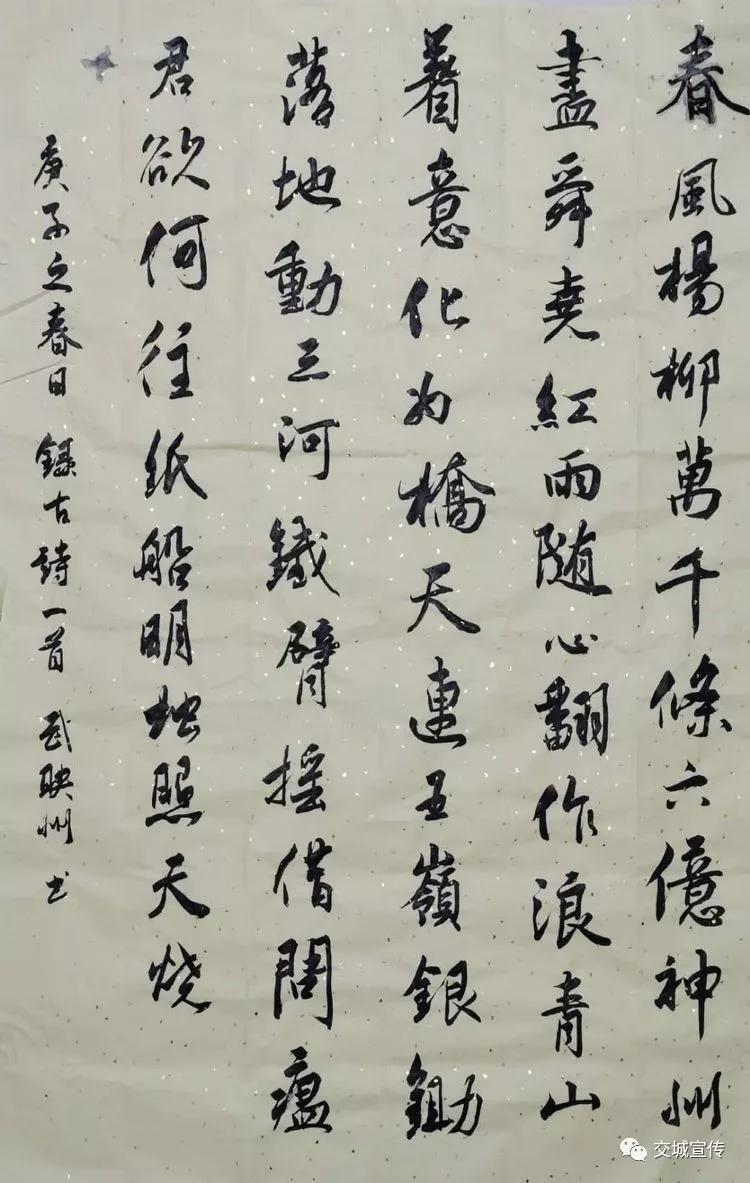 春風楊柳萬千條六億神州
盡舜堯紅雨随心翻作浪青山
著意化为橋天連五嶺銀鋤
落地動三河鐵臂摇借問瘟
君欲何往紙船明烛照天燒
庚子之春日 錄古詩一首 武映州书
交城宣传